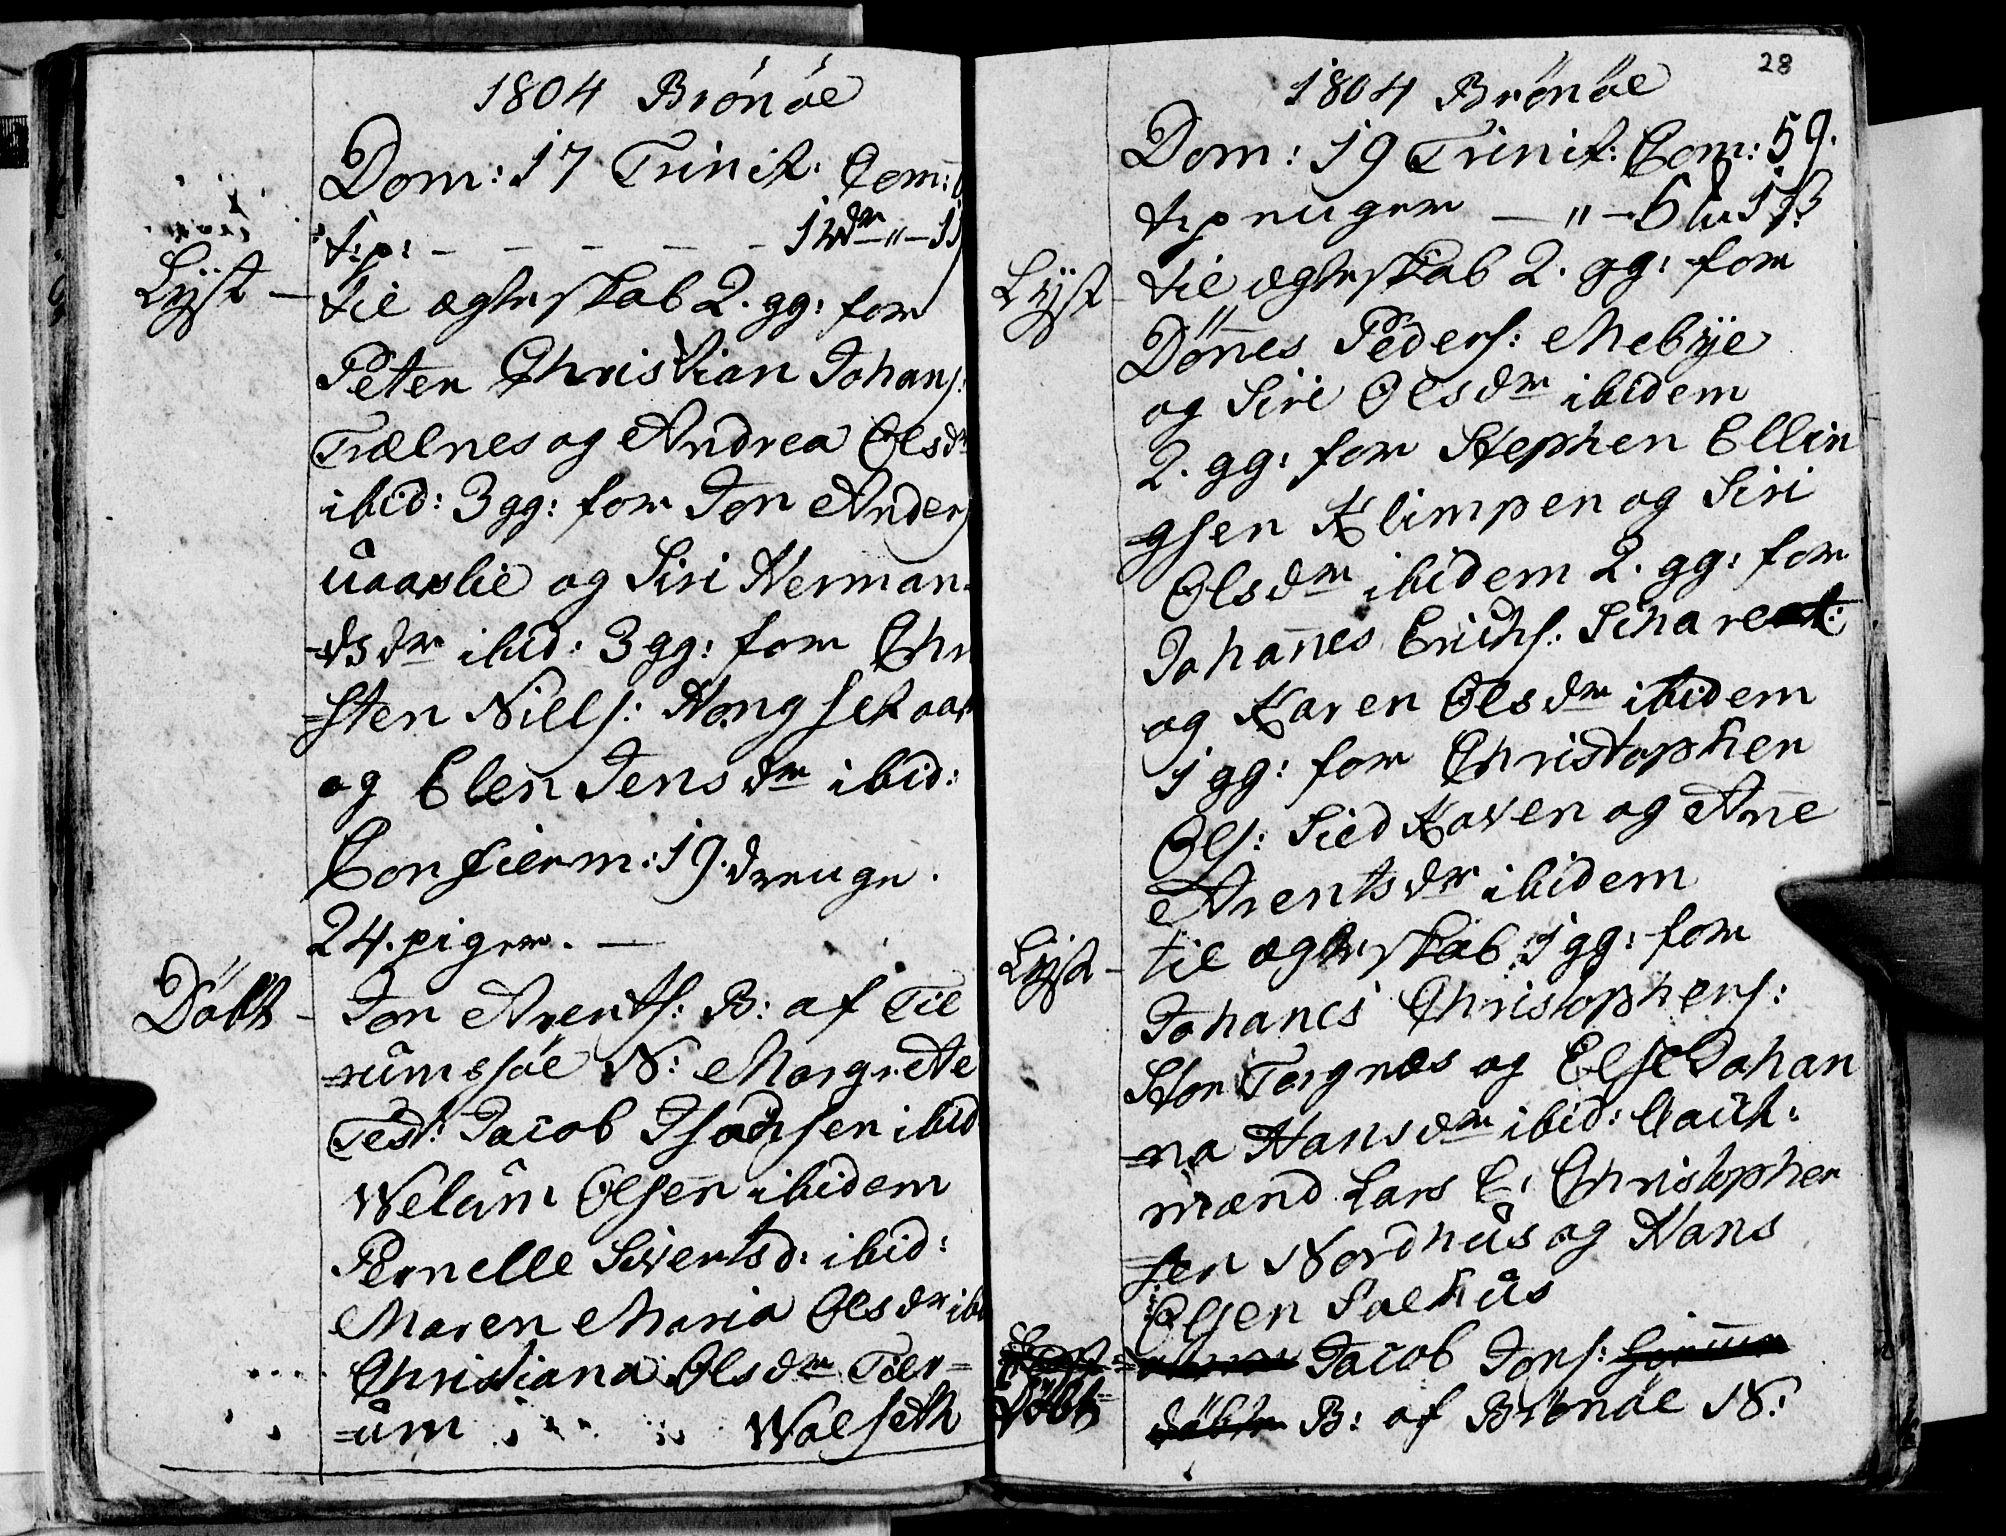 1804 Brönöe
Dom: 17 Trinit: Com:
t: p: - - - - - 1
Lyst - til ægteskab 2. gg: for
Peter Christian Johans:
Trælnes og Andrea Olsdr
ibid: 3 gg: for Jon Anders
og Siri Herman=
=dsdr ibid: 3 gg: for Chri
=sten Niels:
og Elen Jensdr ibid:
Confierm: 19. drenge.
24. piger. —
Döbt - Jon Arents: B: af Til
=rumsjöe N: Margrete
Test: Jacob Isachsen ibid
Welum Olsen ibidem
Pernelle Sivertsd: ibid:
Maren Maria Olsdr ibi
Christiana Olsdr Tilr=
=um Walseth
28
1804 Brönöe
Dom: 19 Trinit: Com: 59.
t: p
Lyst - til ægteskab 2. gg: for
Dönnes Peders: Mebye
og Siri Olsdr ibidem
2. gg: for Stephen Ellin
=gsen Klimpen og Siri
Olsdr ibidem 2. gg: for
Johannes Erichs:
og Karen Olsdr ibidem
1 gg: for Christopher
Ols: Sildhaven og Anne
Arentsdr ibidem
Lyst - til ægteskab 1 gg: for
Johanes Christophers:
Stor Torgnæs og Else Johan
=na Hansdr ibid: Caut:
mænd Lars C: Christopher
=sen Nordhus og Hans
Olsen Salhus
Jacob Jons:
Döbt B: af Brönöe N: